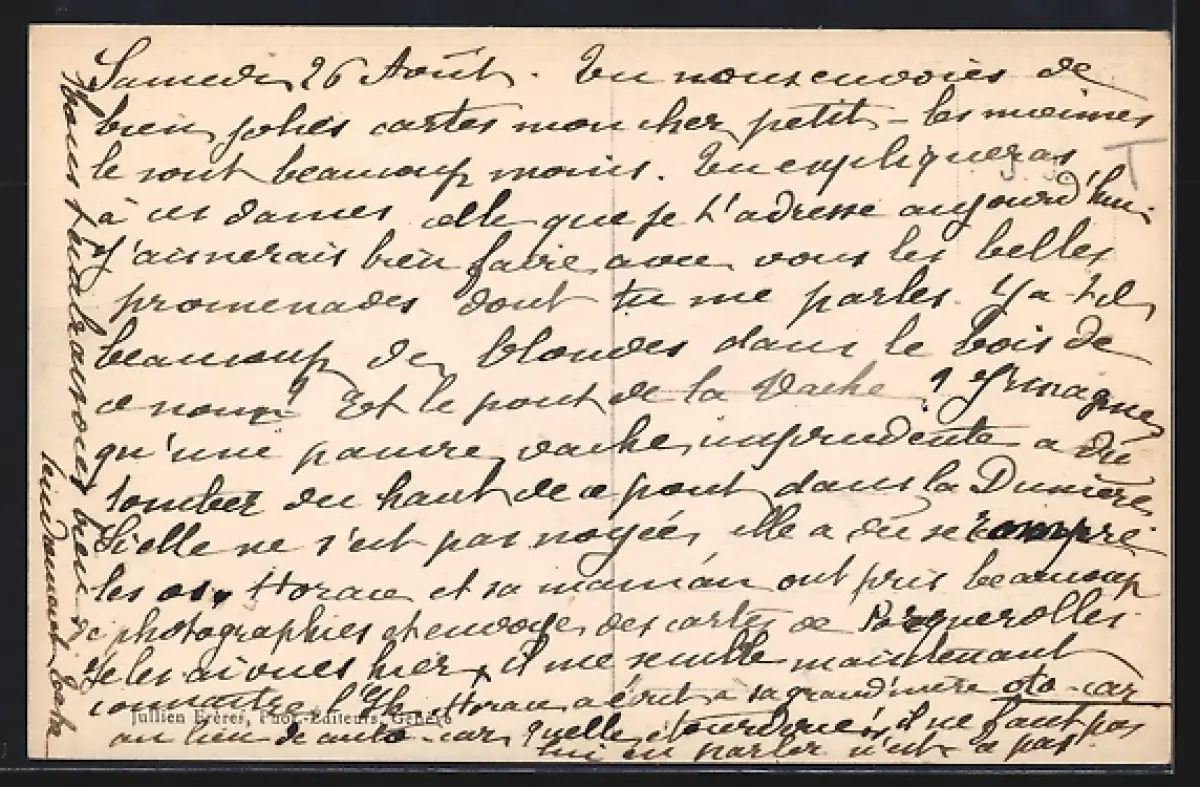 Samedi 26 Août. Tu nous envoies de
bien jolies cartes mon cher petit - les miennes
le sont beaucoup moins. Tu expliqueras
à ces dames celle que je t'adresse aujourd'hui.
J'aimerais bien faire avec vous les belles
promenades dont tu me parles. Y a-t-il
beaucoup de blondes dans le bois de
ce nom? Et le pont de la Vache? J'imagine
qu'une pauvre vache imprudente a dû
tomber du haut de ce pont dans la
Si elle ne s'est pas noyée, elle a dû se rompre
les os. Horace et sa maman ont pris beaucoup
de photographies et envoyé des cartes de Porquerolles.
Je les ai vues hier, il me semble maintenant
connaître l'Ile. Horace a écrit à sa grand'mère oto-car
au lieu de auto-car. Quelle étourderie, il ne faut pas
lui en parler n'est-ce pas.
Nous t'embrassons bien
tendrement
Jullien Frères, Phot.-Editeurs, Genève
T